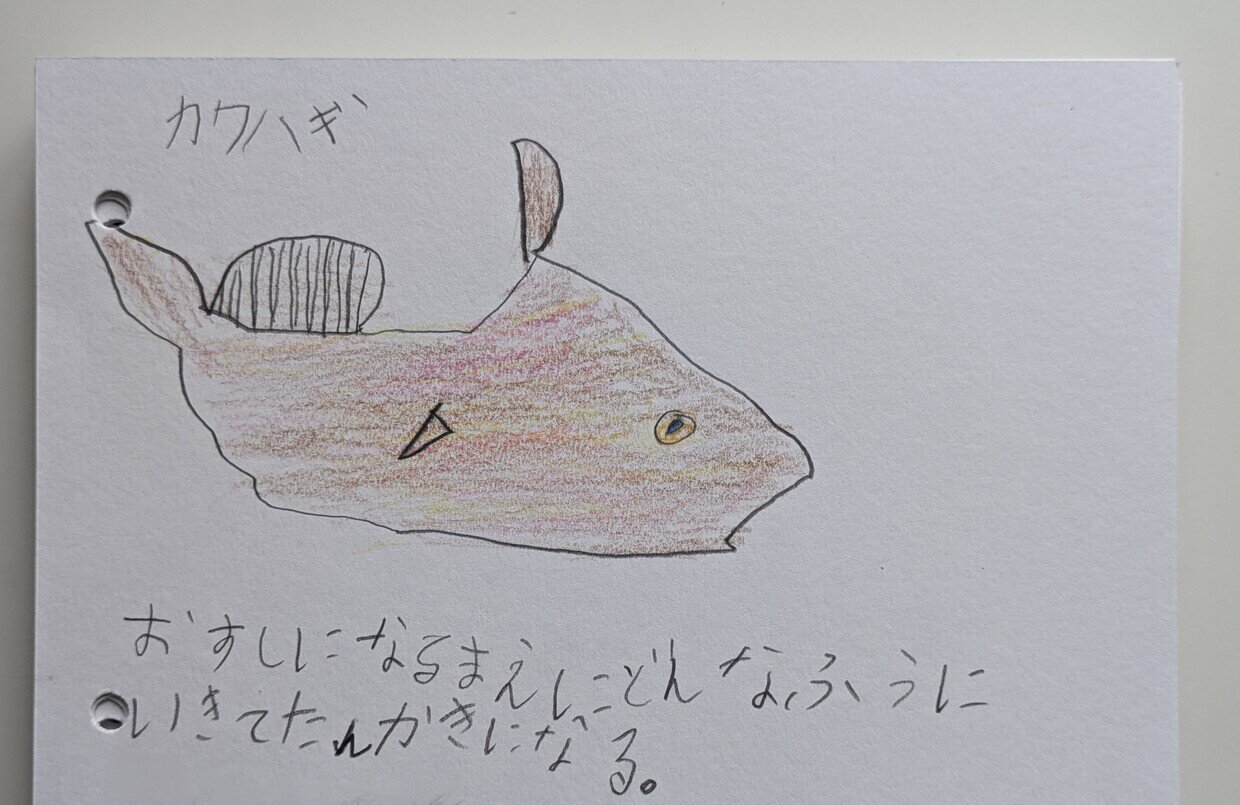 カワハギ
おすしになるまえにどんなふうに
いきてたんかきになる。